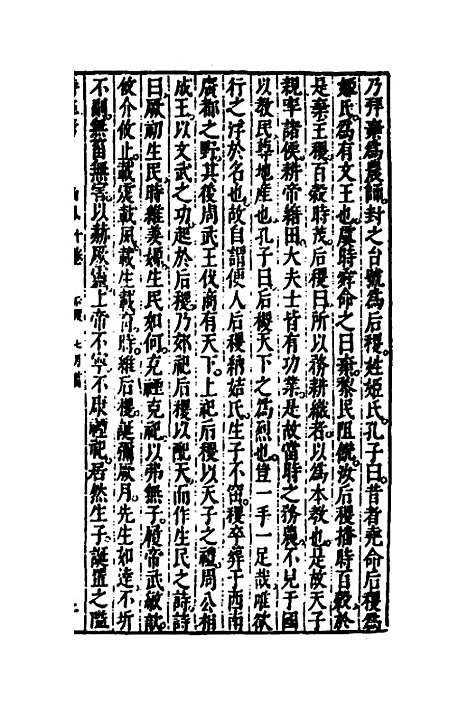 乃拜棄為農師封之台號為后稷姓姬氏孔子曰昔者堯命后稷為
姬氏為有文王也虞時舜命之曰棄黎民阻飢汝后稷播時百穀於
是棄主稷百穀時茂后稷曰所以務耕織者以為本教也是故天子
親率諸侯耕帝籍田大夫士皆有功業是故當時之務農不見于國
以教民尊地產也孔子曰后稷天下之為烈也豈一手一足哉唯欲
行之浮於名也故自謂便人后稷納姞氏生子不窋稷卒葬于西南
廣都之野其後周武王伐商有天下上祀后稷以天子之禮周公相
成王以文武之功起於后稷乃郊祀后稷以配天而作生民之詩詩
曰厥初生民時維姜嫄生民如何克禋克祀以弗無子履帝武敏歆
攸介攸止載震載夙載生載育時維后稷誕彌厥月先生如達不坼
不副無菑無害以赫厥靈上帝不寧不康禋祀居然生子誕寘之隘